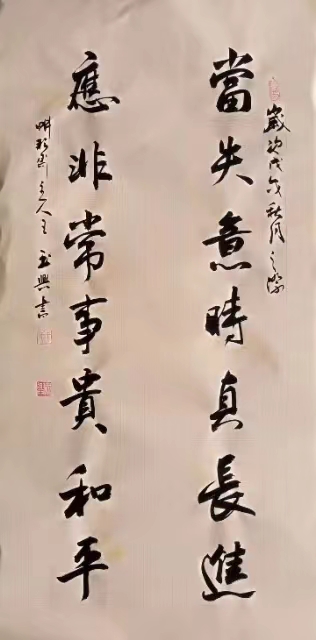 歲次戊戌秋月之際
當失意時真長進
應非常事貴和平
主人王玉興書